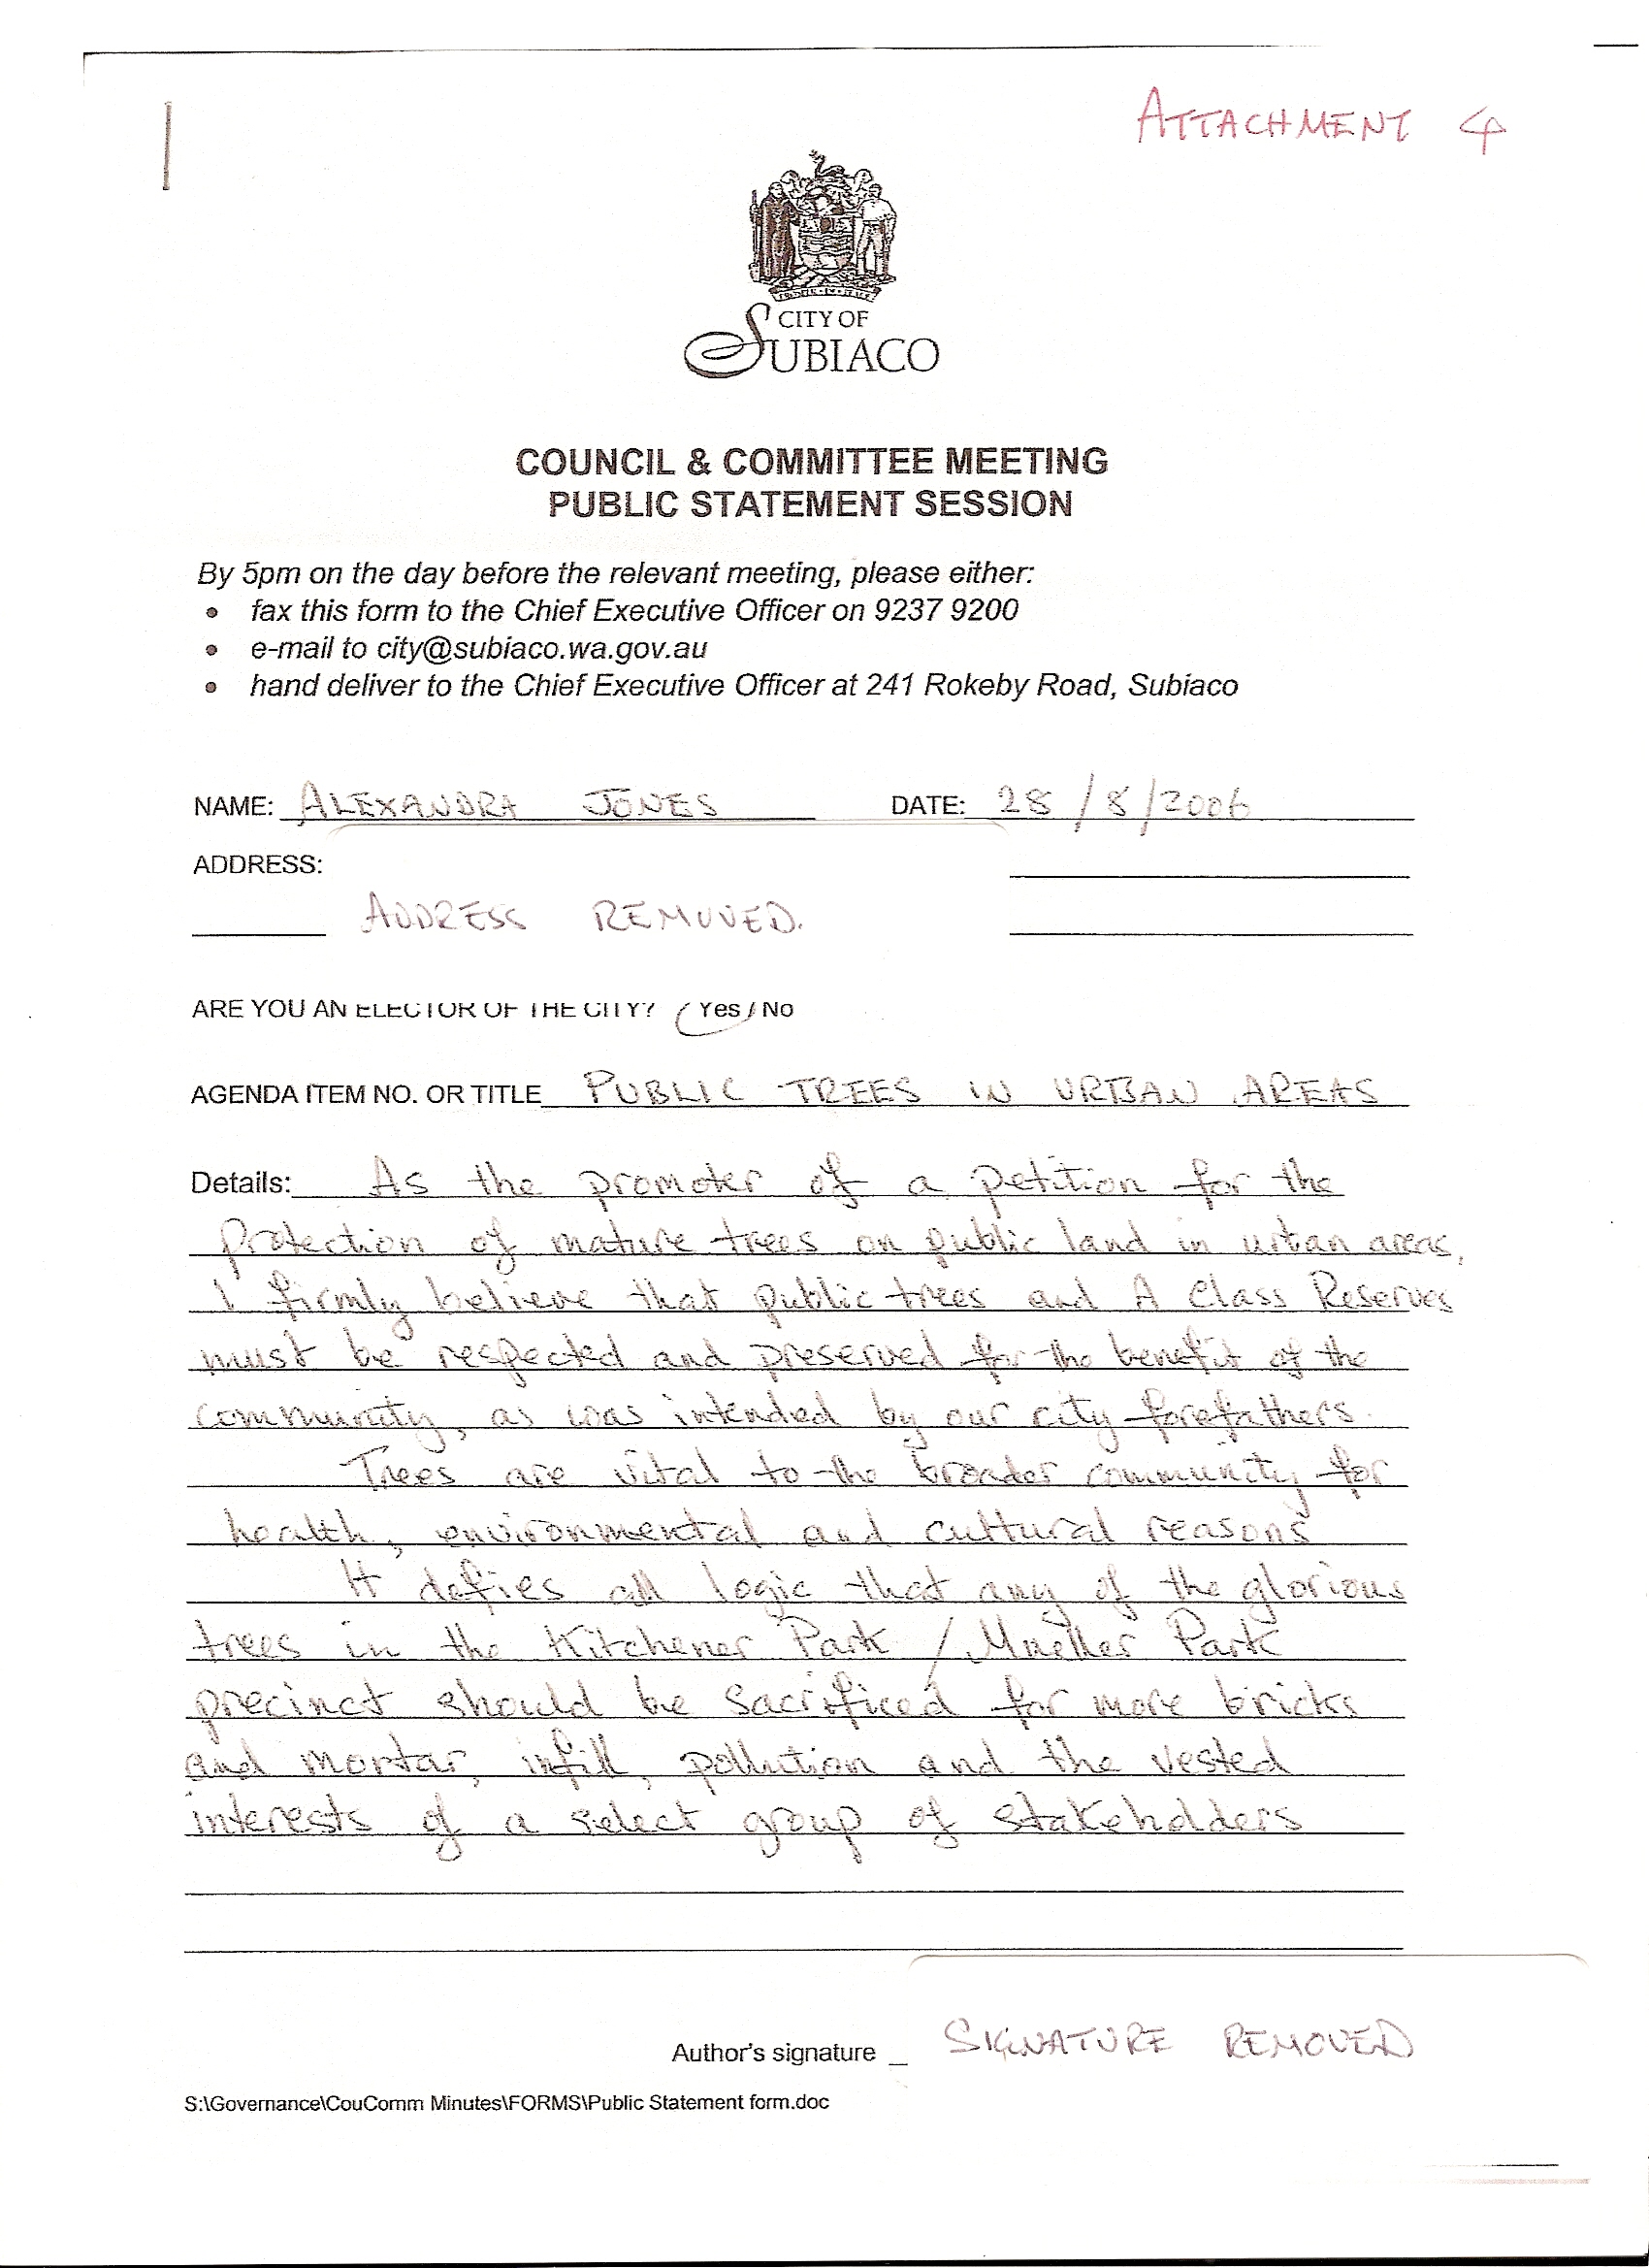 ATTACHMENT 4
CITY OF
SUBIACO
COUNCIL & COMMITTEE MEETING
PUBLIC STATEMENT SESSION
By 5pm on the day before the relevant meeting, please either:
• fax this form to the Chief Executive Officer on 9237 9200
• e-mail to city@subiaco.wa.gov.au
• hand deliver to the Chief Executive Officer at 241 Rokeby Road, Subiaco
NAME: ALEXANDRA JONES DATE: 28/8/2006
ADDRESS:
ADDRESS REMOVED.
ARE YOU AN ELECTOR OF THE CITY? Yes / No
AGENDA ITEM NO. OR TITLE PUBLIC TREES IN URBAN AREAS
Details: As the promoter of a petition for the
protection of mature trees on public land in urban areas,
I firmly believe that public trees and A Class Reserves
must be respected and preserved for the benefit of the
community, as was intended by our city forefathers.
Trees are vital to the broader community for
health, environmental and cultural reasons
It defies all logic that any of the glorious
trees in the Kitchener Park / Mueller Park
precinct should be sacrificed for more bricks
and mortar, infill, pollution and the vested
interests of a select group of stakeholders
Author's signature SIGNATURE REMOVED
S:\Governance\CouComm Minutes\FORMS\Public Statement form.doc